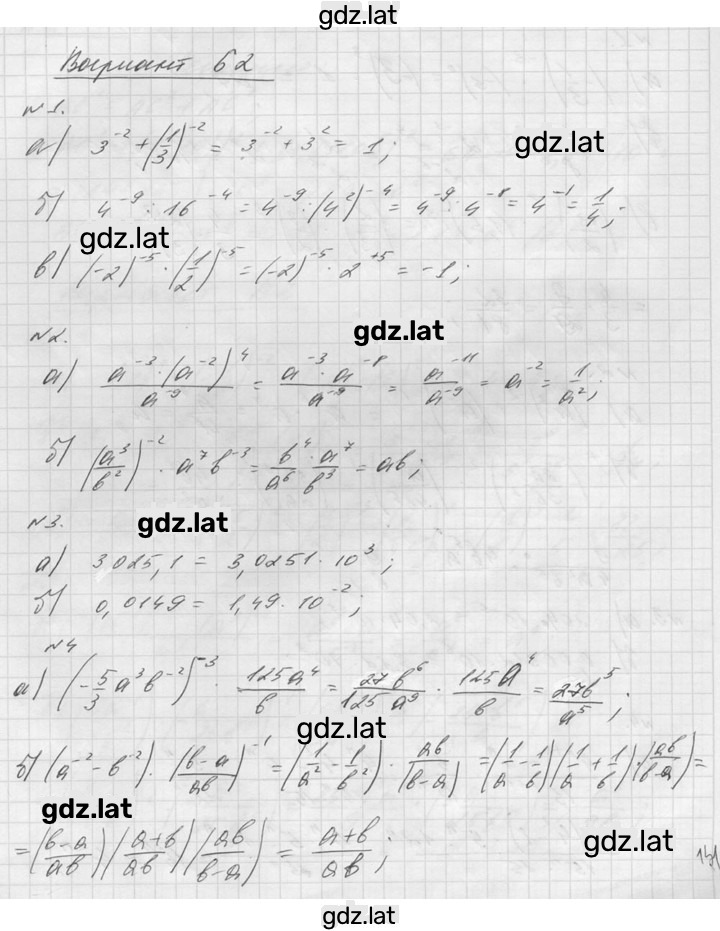 gdz.lat
Вариант 62
№1.
а) 3^{-2} + (1/3)^{-2} = 3^{-2} + 3^{2} = 1;
gdz.lat
б) 4^{-9} : 16^{-4} = 4^{-9} : (4^{2})^{-4} = 4^{-9} : 4^{-8} = 4^{-1} = 1/4;
gdz.lat
в) (-2)^{-5} · (1/2)^{-5} = (-2)^{-5} · 2^{+5} = -1;
№2.
gdz.lat
а) (a^{-3} · (a^{-2})^{4})/a^{-9} = (a^{-3} · a^{-8})/a^{-9} = a^{-11}/a^{-9} = a^{-2} = 1/a^{2};
б) (a^{3}/b^{2})^{-2} · a^{7} b^{-3} = b^{4}/a^{6} · a^{7}/b^{3} = ab;
№3.
gdz.lat
а) 3025,1 = 3,0251 · 10^{3};
б) 0,0149 = 1,49 · 10^{-2};
№4
а) (-5/3 a^{3} b^{-2})^{-3} · 125a^{4}/b = 27b^{6}/125a^{9} · 125a^{4}/b = 27b^{5}/a^{5};
gdz.lat
б) (a^{-2} - b^{-2}) · ((b-a)/ab)^{-1} = (1/a^{2} - 1/b^{2}) · (ab/(b-a)) = (1/a - 1/b)(1/a + 1/b) · (ab/(b-a)) =
gdz.lat
= ((b-a)/ab)((a+b)/ab)(ab/(b-a)) = (a+b)/ab;
gdz.lat
151
gdz.lat